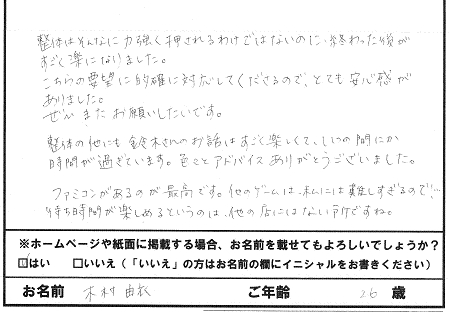 整体はそんなに力強く押されるわけではないのに、終わった後が
すごく楽になりました。
こちらの要望に的確に対応してくださるので、とても安心感が
ありました。
ぜひまたお願いしたいです。
整体の他にも鈴木さんのお話はすごく楽しくて、いつの間にか
時間が過ぎています。色々とアドバイスありがとうございました。
ファミコンがあるのが最高です。他のゲームは、私には難しすぎるので…
待ち時間が楽しめるというのは、他の店にはない所ですね。
※ホームページや紙面に掲載する場合、お名前を載せてもよろしいでしょうか？
☑はい □いいえ（「いいえ」の方はお名前の欄にイニシャルをお書きください）
お名前 木村 由 ご年齢 26 歳